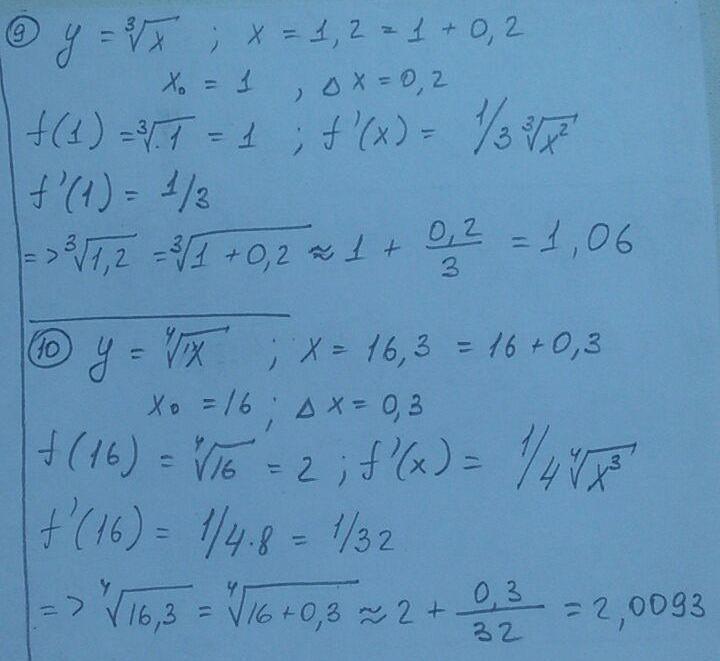 ⑨ y = ∛x ; x = 1,2 = 1 + 0,2
x₀ = 1 , Δx = 0,2
f(1) = ∛1 = 1 ; f'(x) = 1/3∛x²
f'(1) = 1/3
=> ∛1,2 = ∛1 + 0,2 ≈ 1 + 0,2/3 = 1,06
⑩ y = ∜x ; x = 16,3 = 16 + 0,3
x₀ = 16 ; Δx = 0,3
f(16) = ∜16 = 2 ; f'(x) = 1/4∜x³
f'(16) = 1/4·8 = 1/32
=> ∜16,3 = ∜16 + 0,3 ≈ 2 + 0,3/32 = 2,0093